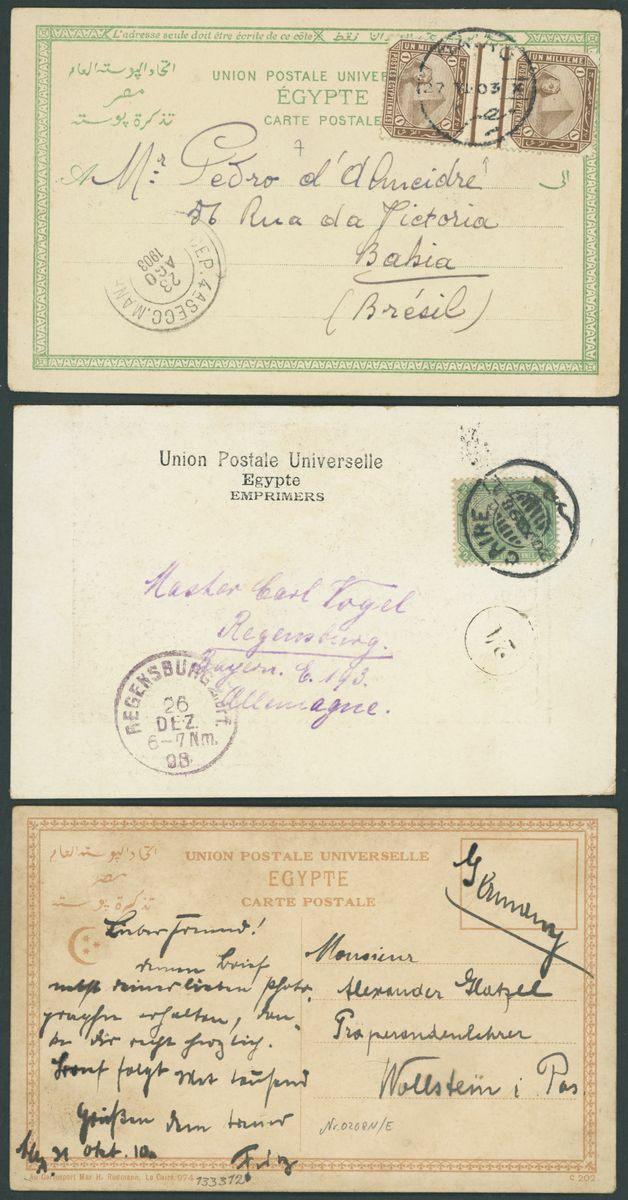 L'adresse seule doit être écrite de ce côté
اتحاد البوسته العام
مصر
تذكرة بوسته
UNION POSTALE UNIVER
ÉGYPTE
CARTE POSTALE
UN MILLIEME
UN MILLIEME
27 VII 03
A Mr. Pedro d'Almeidré
الى
56 Rua da Victoria
Bahia
(Brésil)
23
AGO
1903
Union Postale Universelle
Egypte
EMPRIMERS
CAIRE
Master Carl Vogel
Regensburg.
Bayern. E. 193.
Allemagne.
21
REGENSBURG
26
DEZ.
6-7 Nm.
98
اتحاد البوسته العام
مصر
تذكرة بوسته
UNION POSTALE UNIVERSELLE
EGYPTE
CARTE POSTALE
Germany
Lieber Freund!
deinen Brief
nebst deiner lieben Photo-
graphie erhalten, dan-
ke dir recht herzlich.
folgt Mit tausend
Grüßen dein treuer
31 Okt. 10
Fritz
Monsieur
Alexander Glatzel
Präparandenlehrer
Wollstein i. Pos.
Nr. 0208N/E
Au Cartosport Max H. Rudmann, Le Caire. 974
133312
C 202